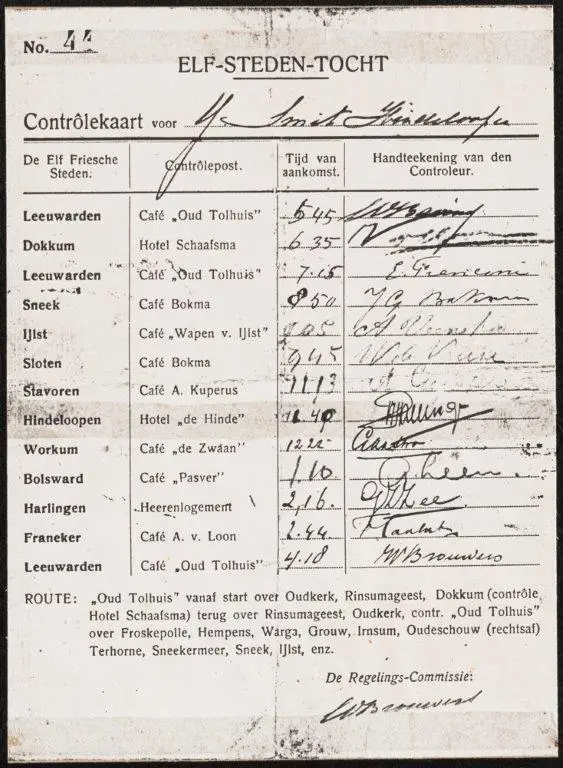 No. 44
ELF-STEDEN-TOCHT
Contrôlekaart voor Smit Hindeloopen
De Elf Friesche Steden. Contrôlepost. Tijd van aankomst. Handteekening van den Controleur.
Leeuwarden Café „Oud Tolhuis" 5 45
Dokkum Hotel Schaafsma 6.35
Leeuwarden Café „Oud Tolhuis" 7.15
Sneek Café Bokma 8 50
IJlst Café „Wapen v. IJlst" 9.05
Sloten Café Bokma 9.45
Stavoren Café A. Kuperus 11.13
Hindeloopen Hotel „de Hinde" 11.40
Workum Café „de Zwaan" 12 22
Bolsward Café „Pasver" 1.10
Harlingen Heerenlogement 2,16.
Franeker Café A. v. Loon 2.44
Leeuwarden Café „Oud Tolhuis" 4.18 W Brouwers
ROUTE: „Oud Tolhuis" vanaf start over Oudkerk, Rinsumageest, Dokkum (contrôle
Hotel Schaafsma) terug over Rinsumageest, Oudkerk, contr. „Oud Tolhuis"
over Froskepolle, Hempens, Warga, Grouw, Irnsum, Oudeschouw (rechtsaf)
Terhorne, Sneekermeer, Sneek, IJlst, enz.
De Regelings-Commissie:
W Brouwers